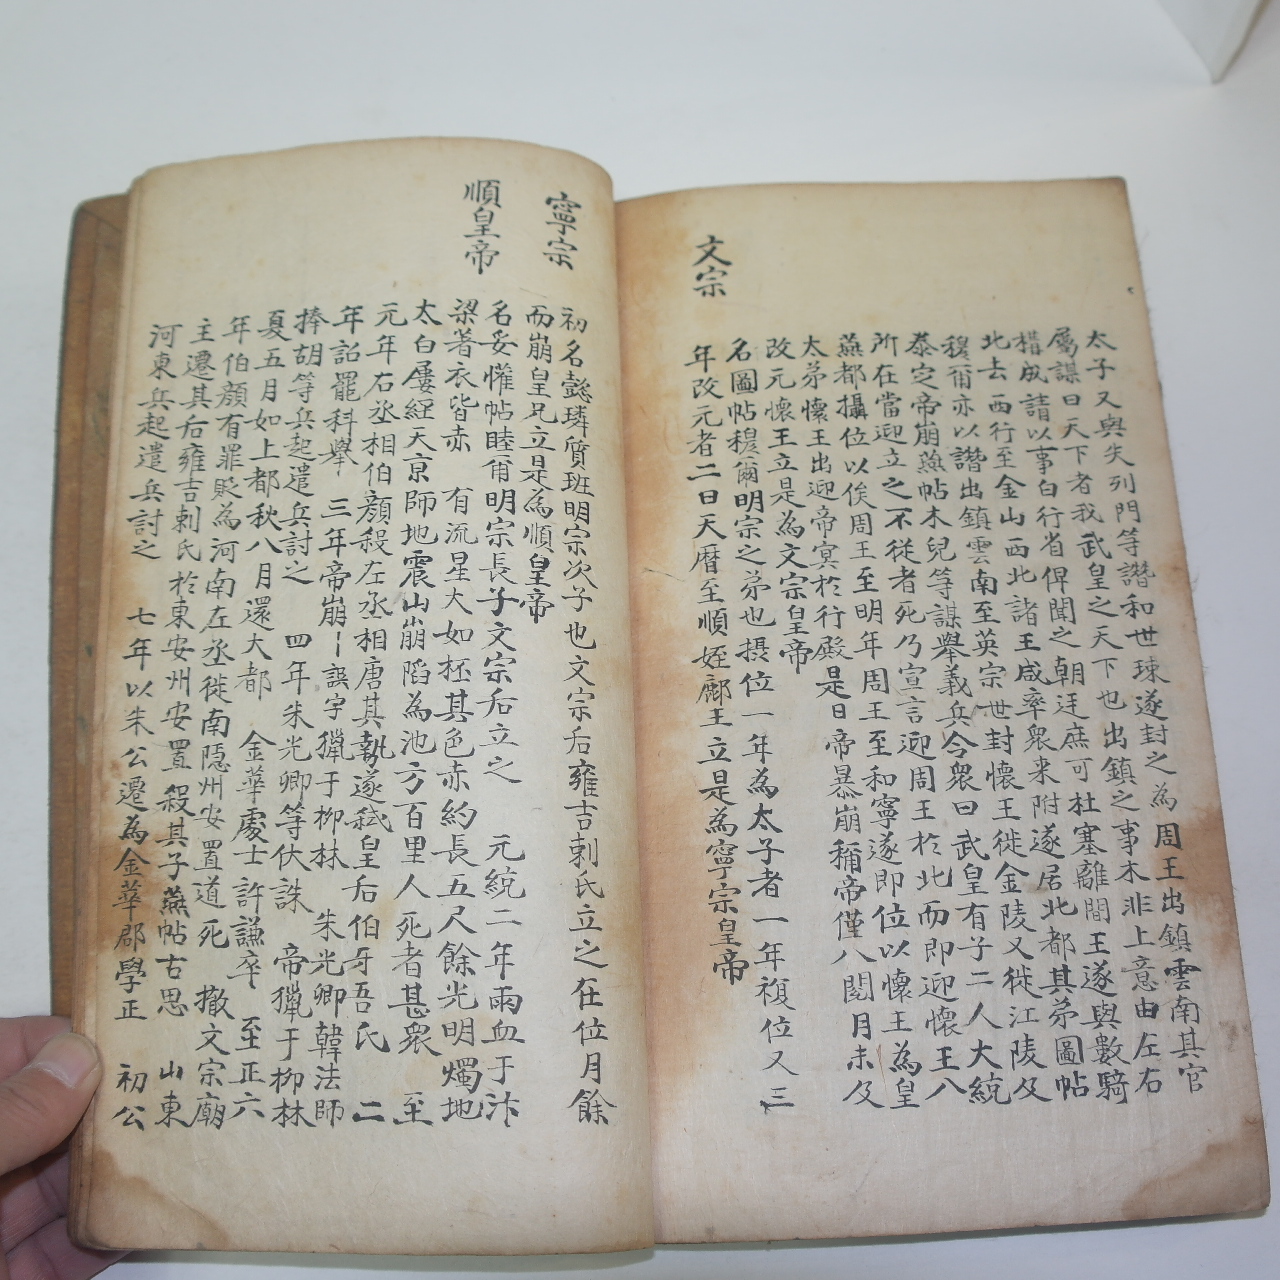 太子又與失列門等譖和世㻋遂封之為周王出鎮雲南其官
屬謀曰天下者我武皇之天下也出鎮之事本非上意由左右
構成請以事白行省俾聞之朝廷庶可杜塞離間王遂與數騎
北去西行至金山西北諸王咸率衆来附遂居北都其弟圖帖
穆爾亦以譖出鎮雲南至英宗世封懷王徙金陵又徙江陵及
泰定帝崩燕帖木兒等謀舉義兵令衆曰武皇有子二人大統
所在當迎立之不從者死乃宣言迎周王於北而即迎懷王八
燕都攝位以俟周王至明年周王至和寧遂即位以懷王為皇
太弟懷王出迎帝㝠於行殿是日帝暴崩稱帝僅八閱月未及
改元懷王立是為文宗皇帝
文宗
名圖帖穆爾明宗之弟也摂位一年為太子者一年複位又三
年改元者二曰天曆至順姪鄜王立是為寧宗皇帝
寧宗
初名懿璘質班明宗次子也文宗后雍吉剌氏立之在位月餘
而崩皇兄立是為順皇帝
順皇帝
名妥懽帖睦甭明宗長子文宗后立之 元統二年雨血于汴
梁著衣皆赤 有流星大如柸其色赤約長五尺餘光明燭地
太白屢經天京師地震山崩陷為池方百里人死者甚衆 至
元年右丞相伯顏殺左丞相唐其執遂弒皇后伯牙吾氏 二
年詔罷科舉 三年帝崩誤字獵于柳林 朱光卿韓法師
捧胡等兵起遣兵討之 四年朱光卿等伏誅 帝獵于柳林
夏五月如上都秋八月還大都 金華處士許謙卒 至正六
年伯顏有罪貶為河南左丞徙南隱州安置道死 撤文宗廟
主遷其后雍吉剌氏於東安州安置殺其子燕帖古思 山東
河東兵起遣兵討之 七年以朱公遷為金華郡學正 初公